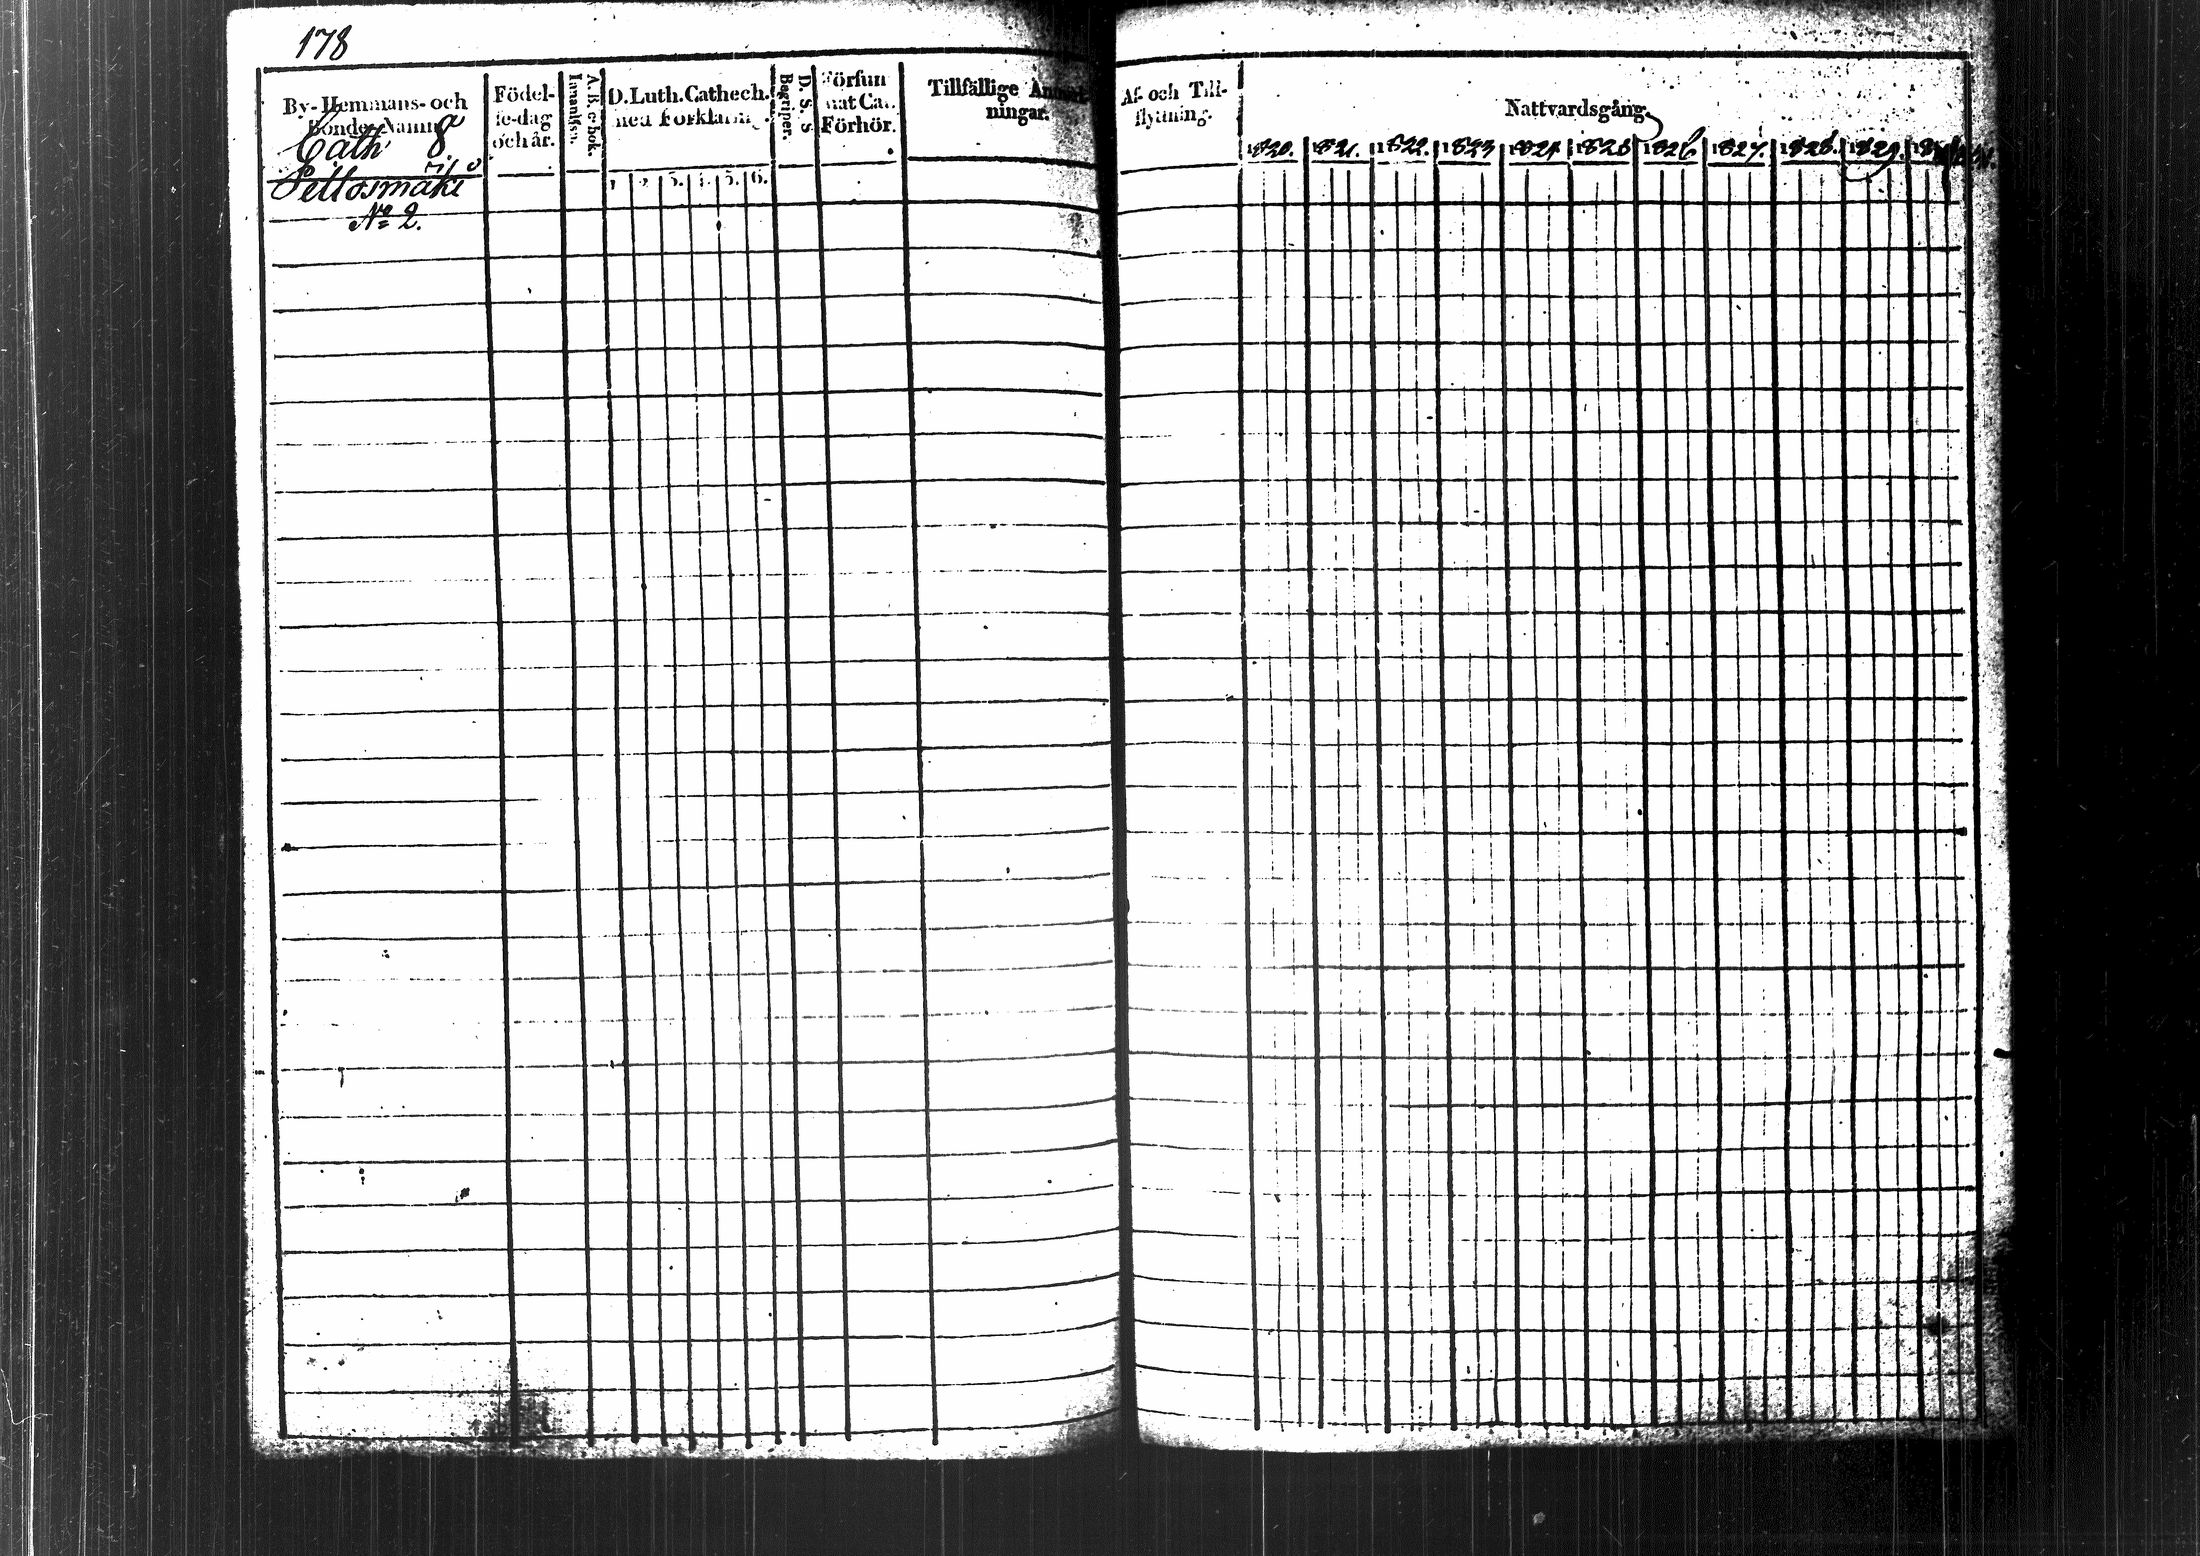 178
By- Hemmans- och
Bonde-Namn
Cath 8
Peltosmäki
No 2.
Födel-
se-dag
och år.
Innanläsn.
A. B. c-bok.
D. Luth. Cathech.
med Förklaring.
1. 2. 3. 4. 5. 6.
Begriper.
D. S. S
Försum
nat Cat.
Förhör.
Tillfällige Anmärk
ningar.
Af- och Till-
flyttning.
Nattvardsgång.
1820. 1821. 1822. 1823 1824 1825 1826 1827. 1828. 1829.